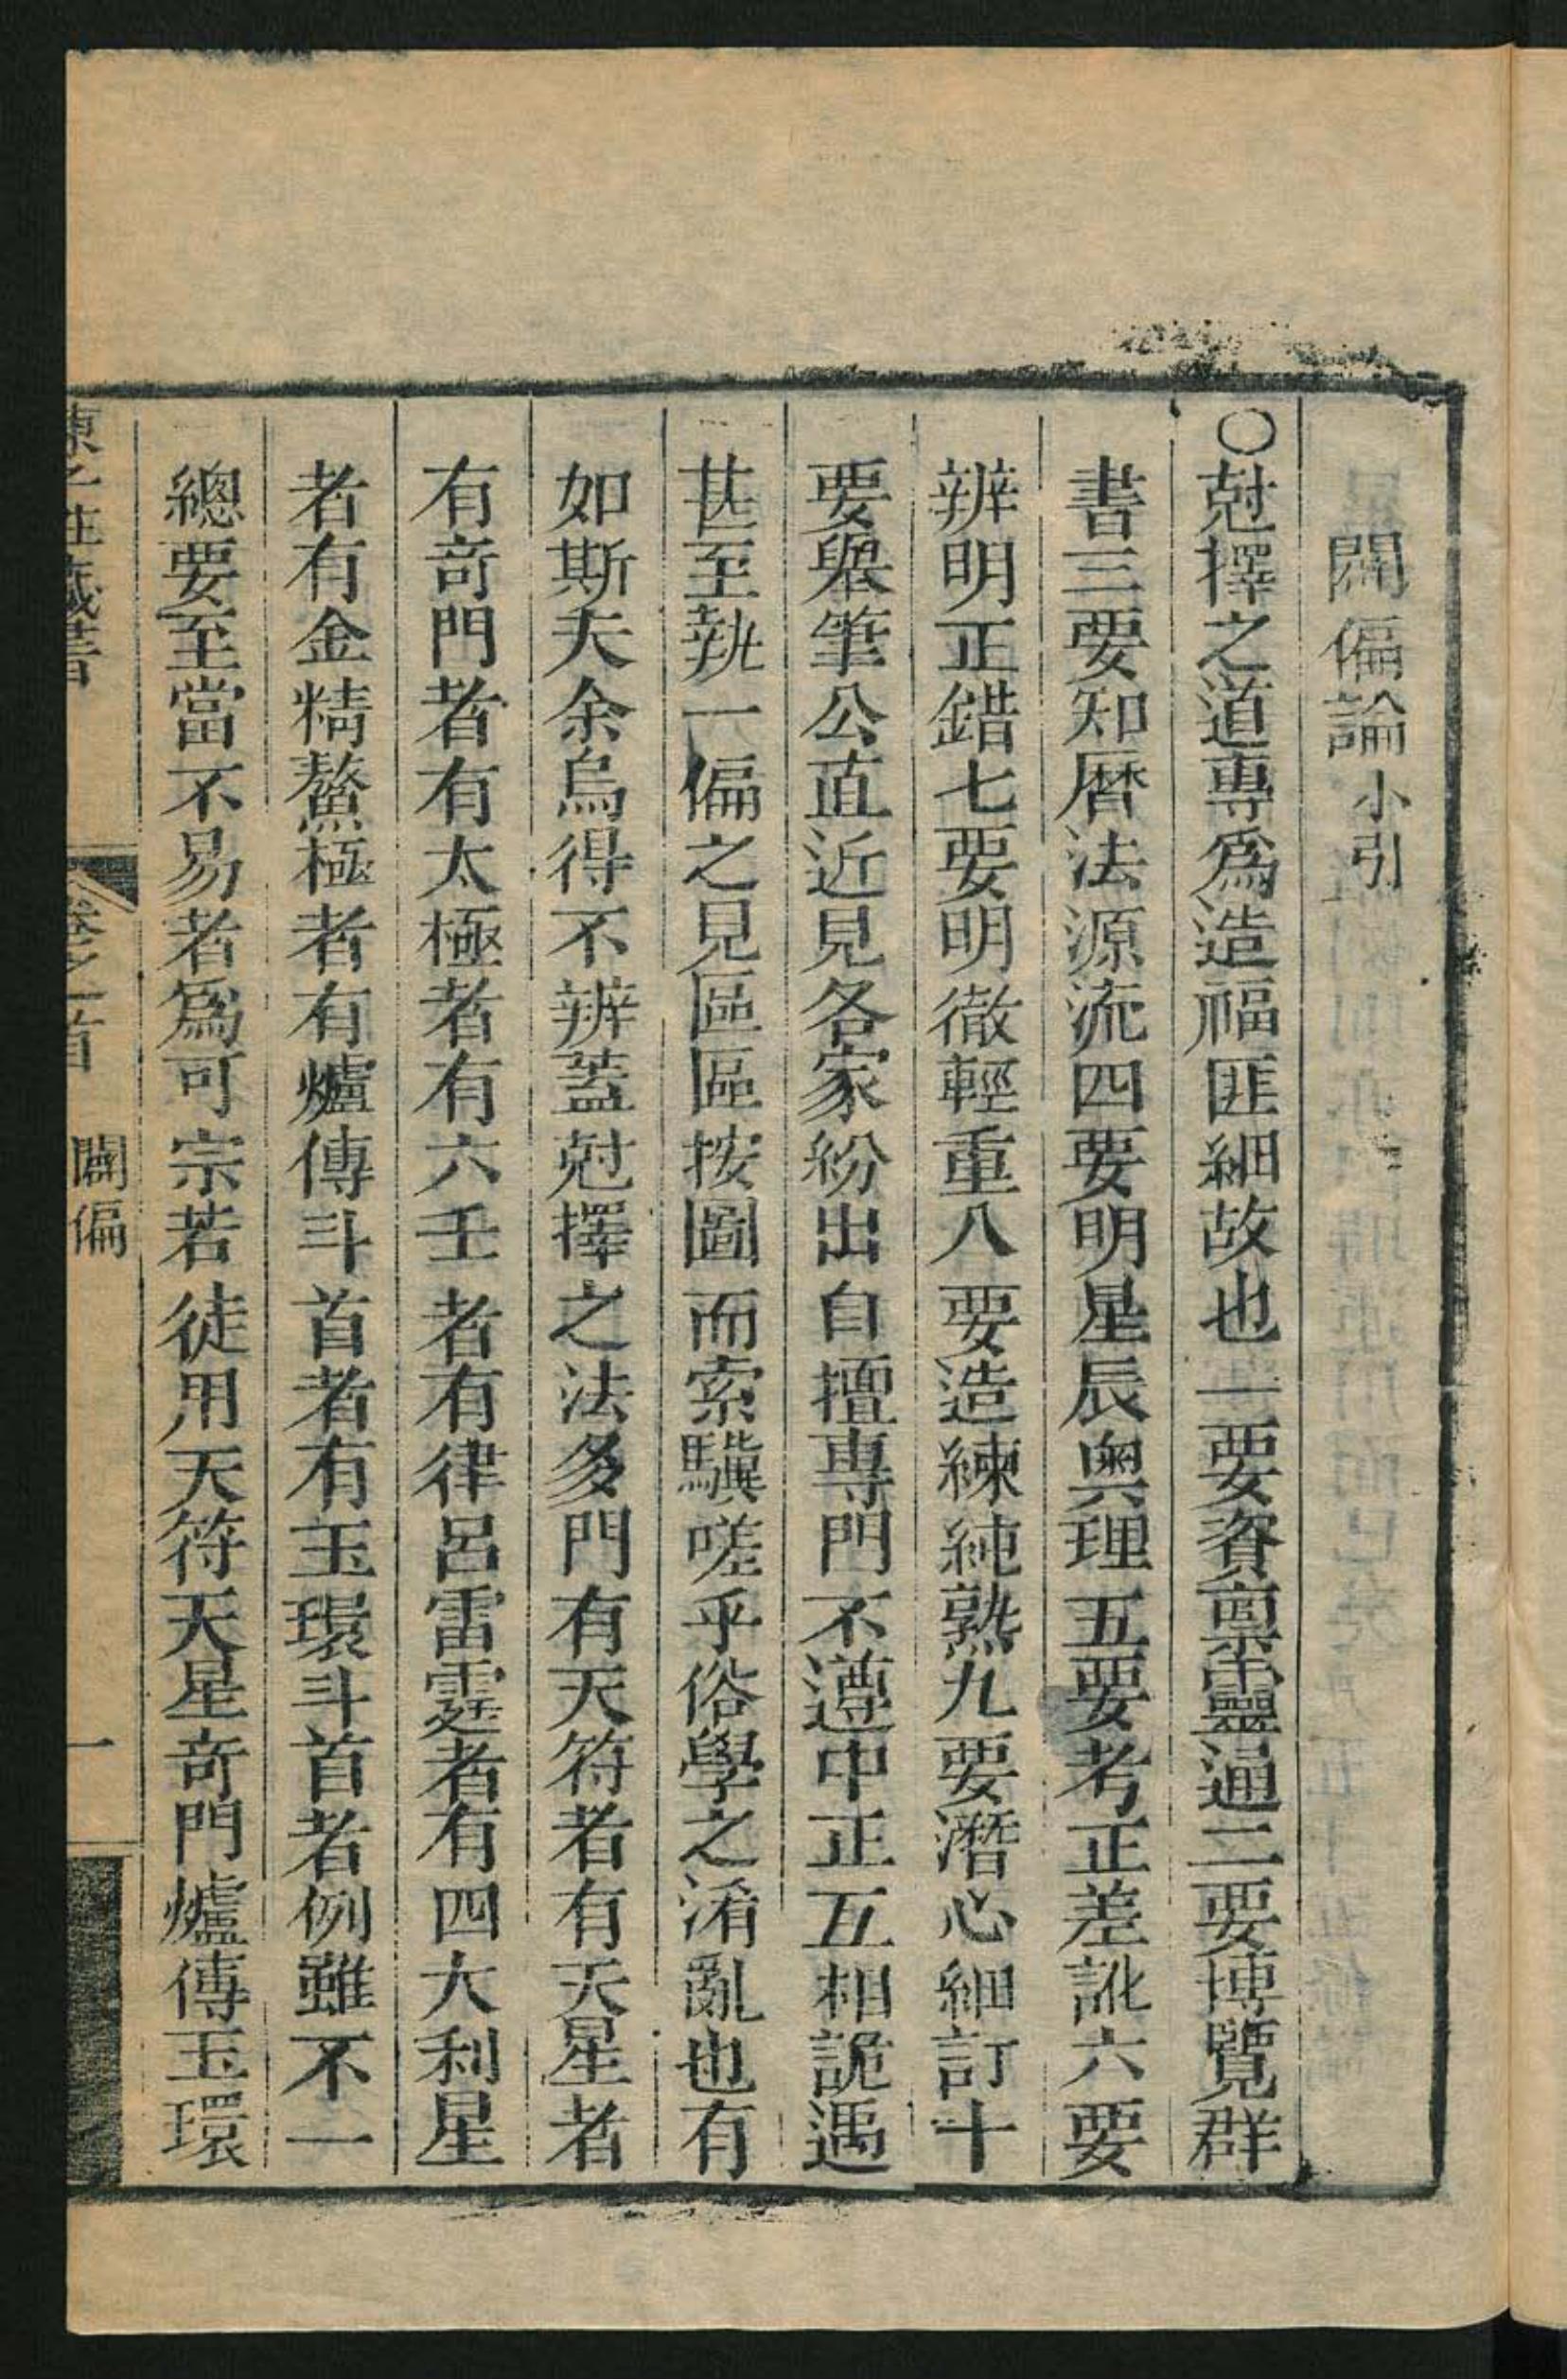 闢偏論小引
〇尅擇之道專爲造福匪細故也一要資稟靈通二要博覽群
書三要知曆法源流四要明星辰奥理五要考正差訛六要
辨明正錯七要明徹輕重八要造練純熟九要潛心細訂十
要舉筆公直近見各家紛出自擅專門不遵中正互相詭遇
甚至執一偏之見區區按圖而索驥嗟乎俗學之淆亂也有
如斯夫余烏得不辨葢尅擇之法多門有天符者有天星者
有奇門者有太極者有六壬者有律呂雷霆者有四大利星
者有金精鰲極者有爐傳斗首者有玉環斗首者例雖不一
總要至當不易者爲可宗若徒用天符天星奇門爐傳玉環
卷之首 闢偏 一